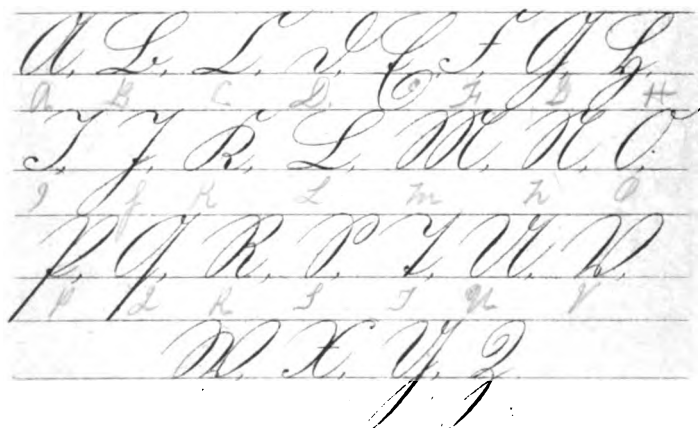 A, B, C, D, E, F, G, H,
A B C D. E F G H
I, J, K, L, M, N, O,
I J K L M N O
P, Q, R, S, T, U, V,
P Q R S T U V
W, X, Y, Z,